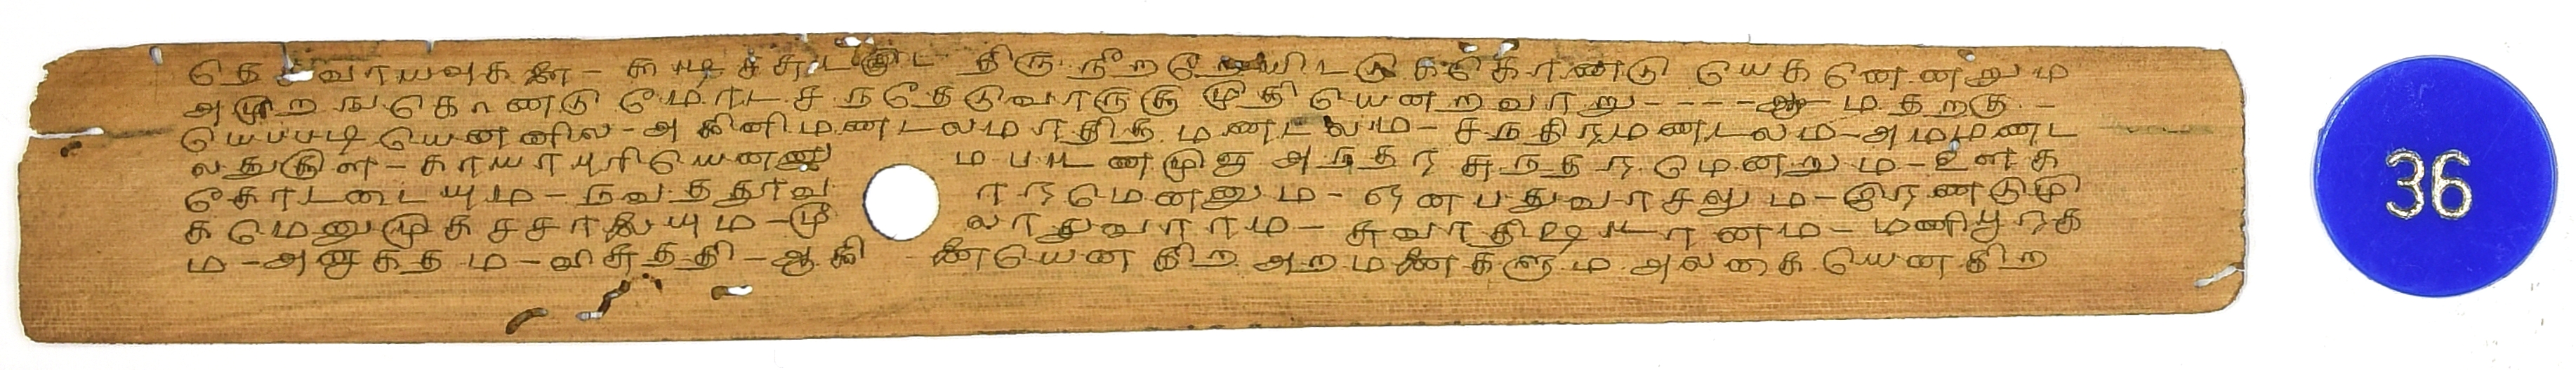 தெ வாயவுக ளை - கூடிச்சுடகூட திரு நீறறேயிடடுககொண்டு யெகனென்னறும
அமூறஙகொணடு மோடச நதேடுவாருகு முதி யெனறவாறு - - - - ஆ - ம தறகு -
யெபபடி யெனனில - அககினிமணடலமாதித மணடலம - சநதிரமணடலம - அமமணட
லதுகுள - காயாபுரியெனனு ம படடணமும அநதர சுநதர மெனறும - உளக
கோடடையும - நவததுவ ாரமெனனும - ஒனபதுவாசலும - இரணடுமு
கமெனுமுகசசாலையும - மூ லாதுவாராம - சுவாதிஷடானம - மணிபூரக
ம - அனாகதம - விசுததி - ஆககி னையெனகிற அறமனைகளும அலகை யெனகிற
36